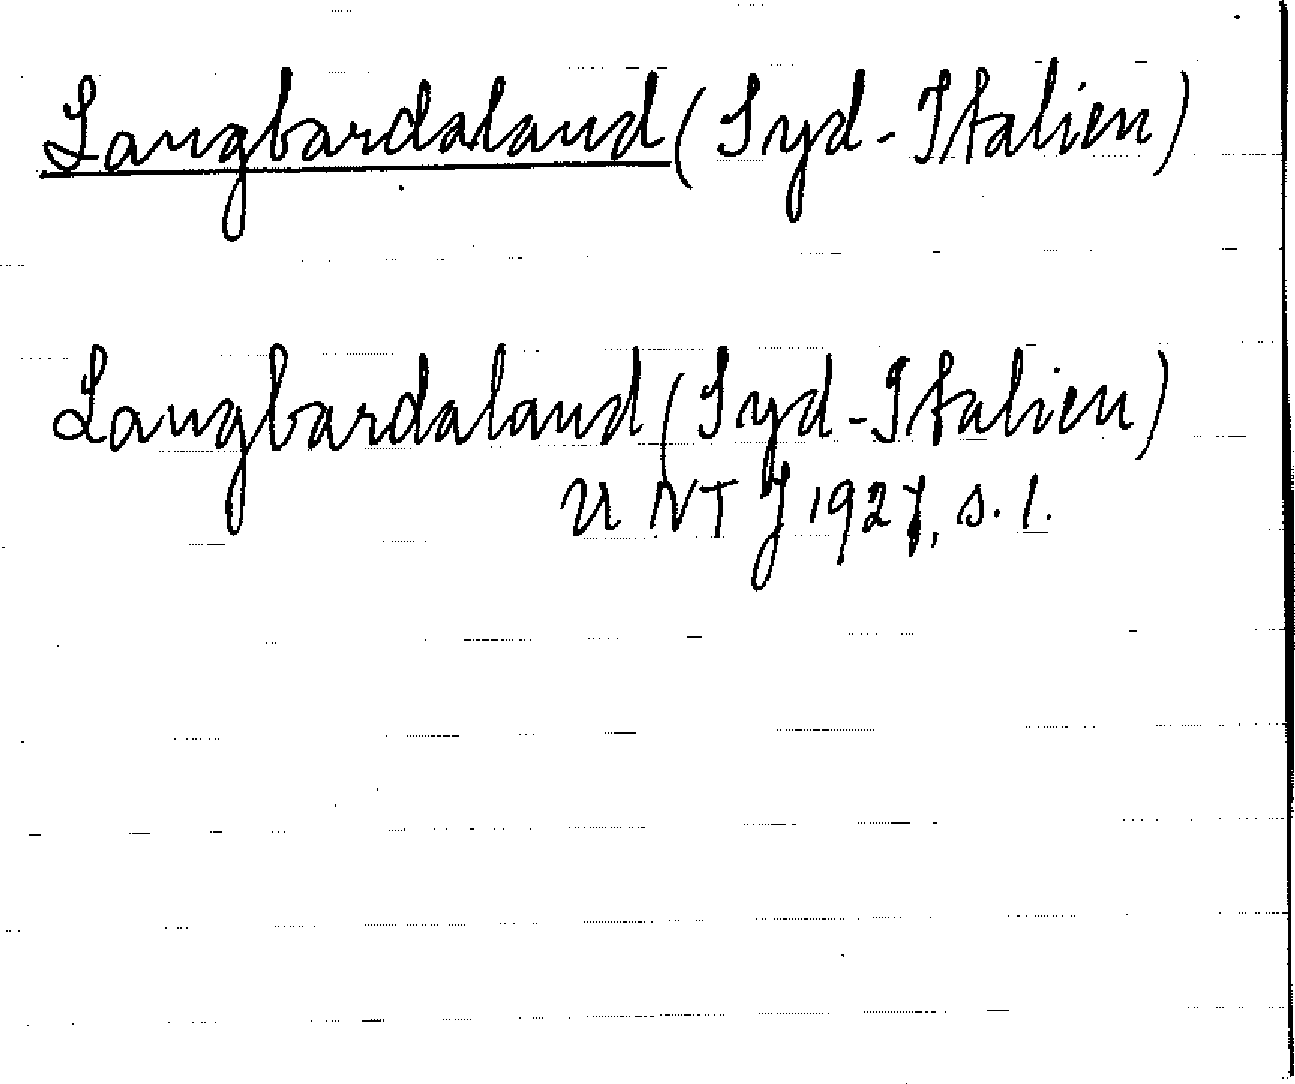 Langbardaland (Syd-Italien)
Langbardaland (Syd-Italien)
UNT J 1927, s. 1.